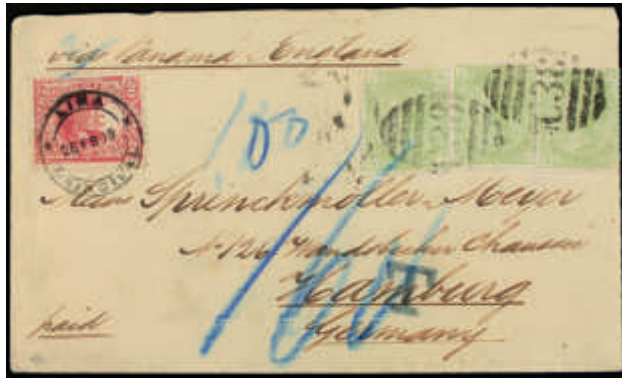 via Panama England
LIMA
PRINCIPAL
C38
C38
100
Sprinchmöller-Meyer
Nº 126 Wandsbecker Chaussee
Hamburg
T
Germany
paid